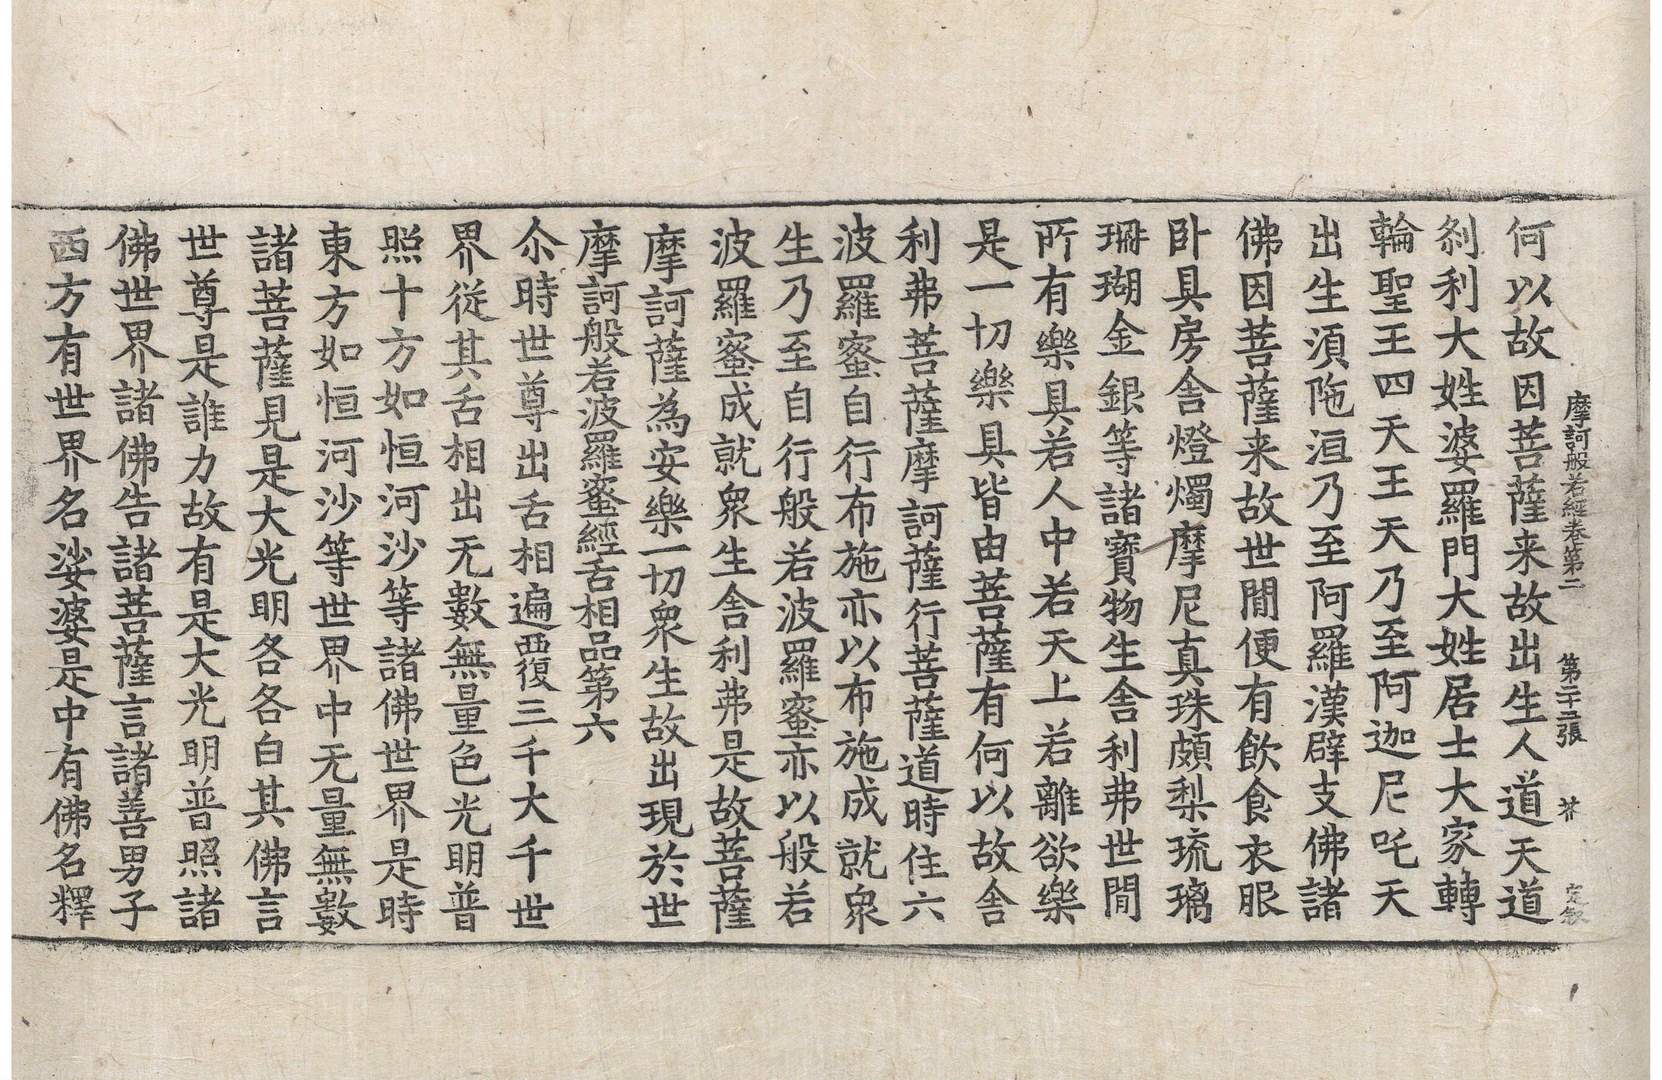 摩訶般若經卷第二 第二十三張 芥 定叙
何以故因菩薩来故出生人道天道
刹利大姓婆羅門大姓居士大家轉
輪聖王四天王天乃至阿迦尼吒天
出生須陁洹乃至阿羅漢辟支佛諸
佛因菩薩来故世間便有飲食衣服
卧具房舍燈燭摩尼真珠頗梨琉璃
珊瑚金銀等諸寶物生舍利弗世間
所有樂具若人中若天上若離欲樂
是一切樂具皆由菩薩有何以故舍
利弗菩薩摩訶薩行菩薩道時住六
波羅蜜自行布施亦以布施成就衆
生乃至自行般若波羅蜜亦以般若
波羅蜜成就衆生舍利弗是故菩薩
摩訶薩為安樂一切衆生故出現於世
摩訶般若波羅蜜經舌相品第六
尒時世尊出舌相遍覆三千大千世
界從其舌相出无數無量色光明普
照十方如恒河沙等諸佛世界是時
東方如恒河沙等世界中无量無數
諸菩薩見是大光明各各白其佛言
世尊是誰力故有是大光明普照諸
佛世界諸佛告諸菩薩言諸善男子
西方有世界名娑婆是中有佛名釋